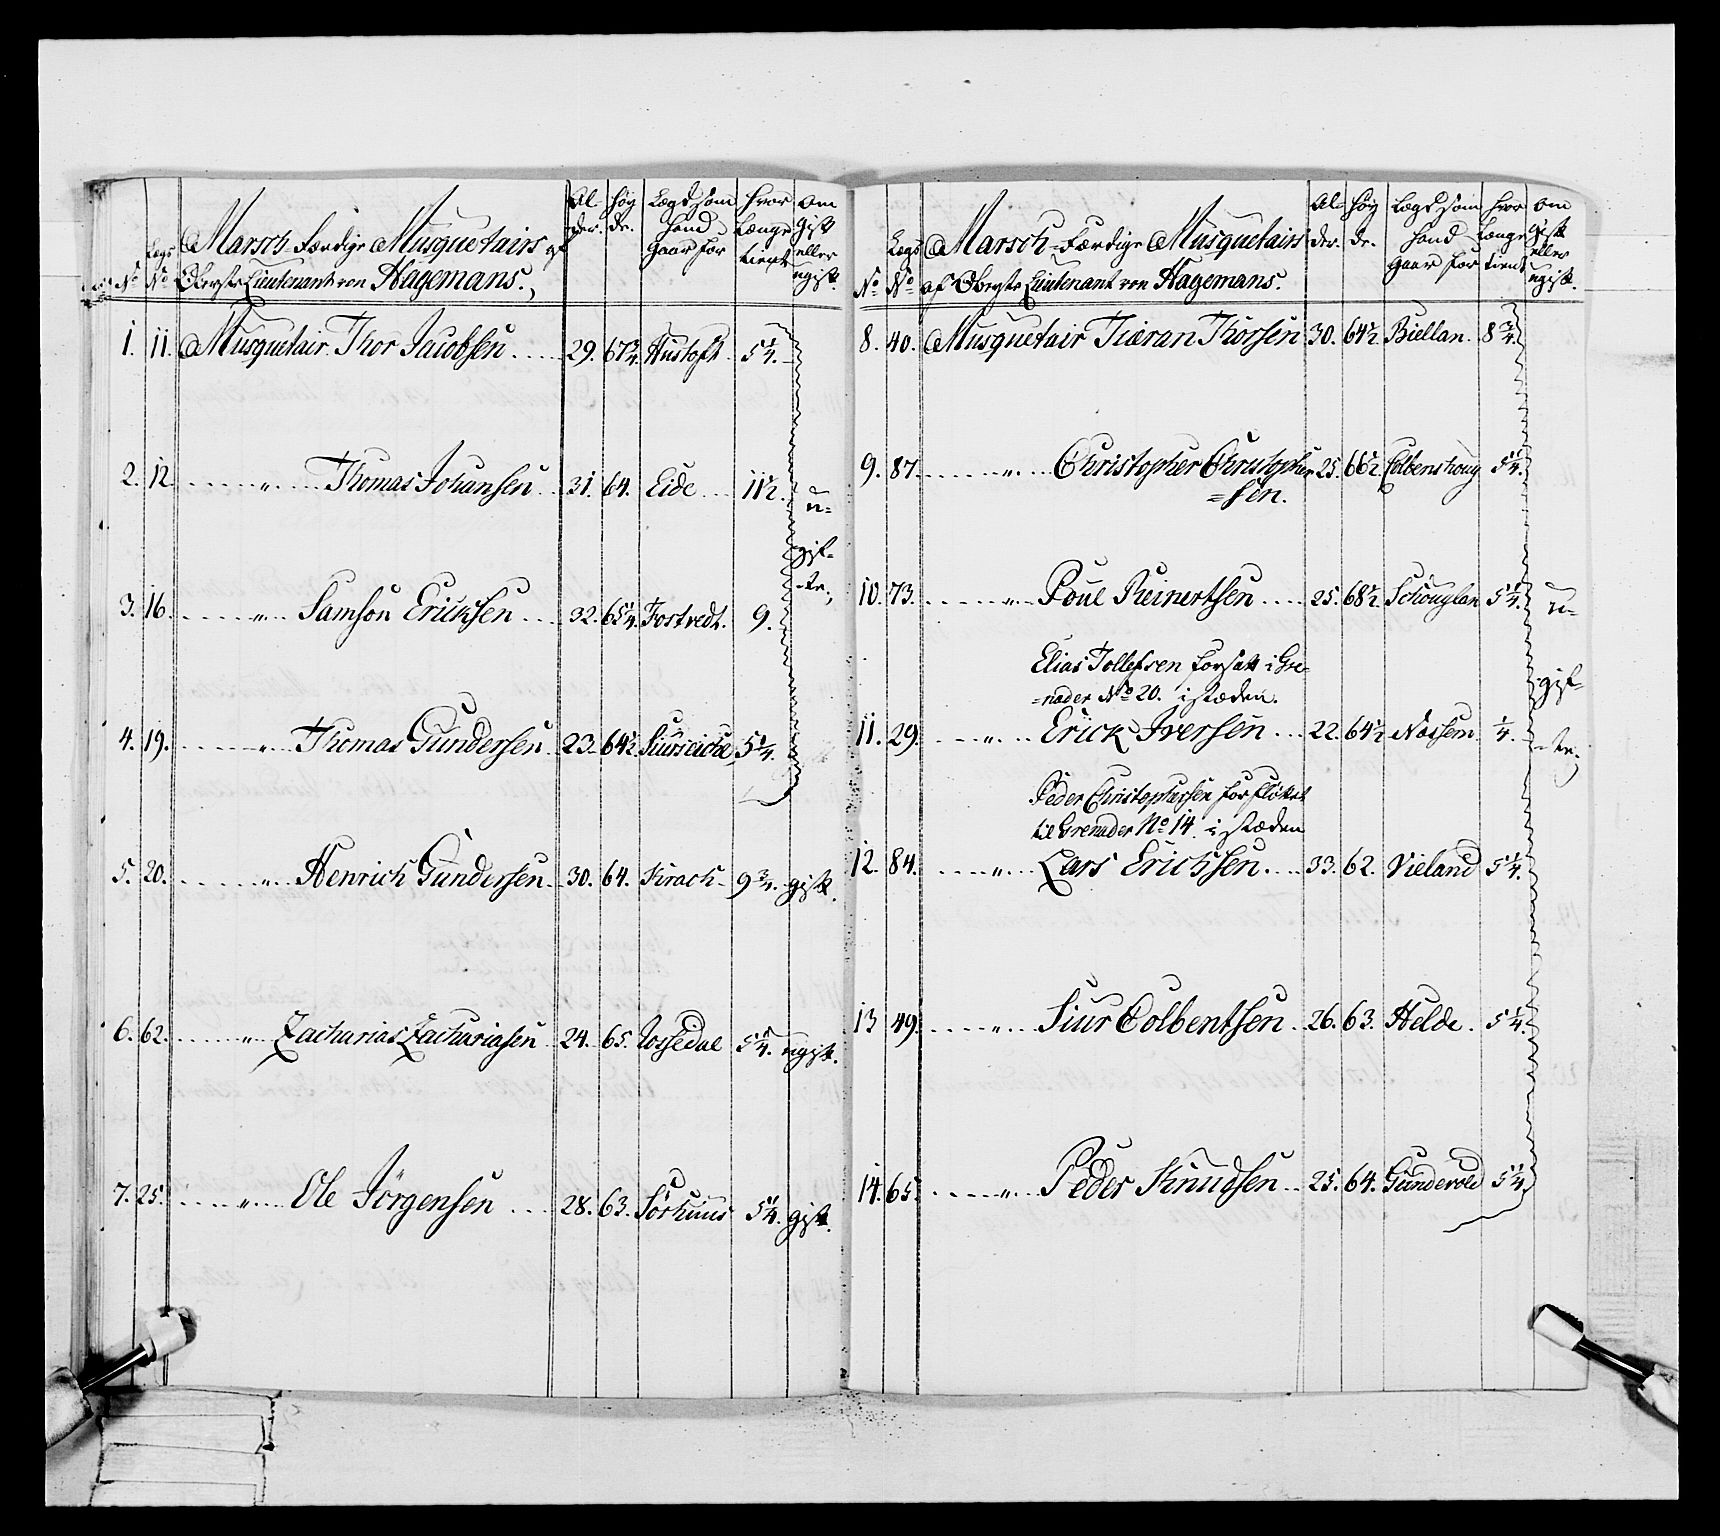 No
Legs No
Marsch-Færdige Musquetairs af
Oberste Lieutenant von Hagemans.
Al- der.
Høy de.
Legd som hand gaar for
hvor længe tient
om gift eller ugift.
1. 11. Musquetair Thor Jacobsen 29. 67 3/4. Hustoft 5 1/4.
2. 12. " Thomas Johansen 31. 64. Eide 11 1/2.
3. 16. " Samson Ericksen 32. 65 1/4. Fostvedt. 9.
u-
gif-
te.
4. 19. " Thomas Gundersen 23. 64 1/2. 5 1/4.
5. 20. " Henrich Gundersen 30. 64. Kirach 9 3/4. gift.
6. 62. " Zacharias Zachariasen 24. 65. Jossedal 5 1/4. ugift.
7. 25. " Ole Jörgensen 28. 63. Sörhuus 5 1/4. gift.
No
Legs No
Marsch-Færdige Musquetairs
af Oberste Lieutenant von Hagemans.
Al- der.
Høy de.
Legd som hand gaar for
hvor længe tient
om gift eller ugift.
8. 40. Musquetair Tiæran Thorsen 30. 64 1/2 Biellan. 8 3/4.
9. 87. " Christopher Christopher 25. 66 1/2 Colbenshoug 5 1/4.
=sen.
10. 73. " Poul Reinertsen 25. 68 1/2 Schouglan 5 1/4.
Elias Tollefsen forsatt i Gre-
=nader No 20. i stæden.
11. 29. " Erick Iversen 22. 64 1/2 Nossem 1/4.
u-
gif-
te.
Peder Christophersen forfløttet
til Grenader No 14. i stæden
12. 84. " Lars Erichsen 33. 62. Vieland 5 1/4.
13 49. " Siur Colbentsen 26. 63. Helde. 5 1/4.
14. 65. " Peder Knudsen 25. 64. Gunderold 5 1/4